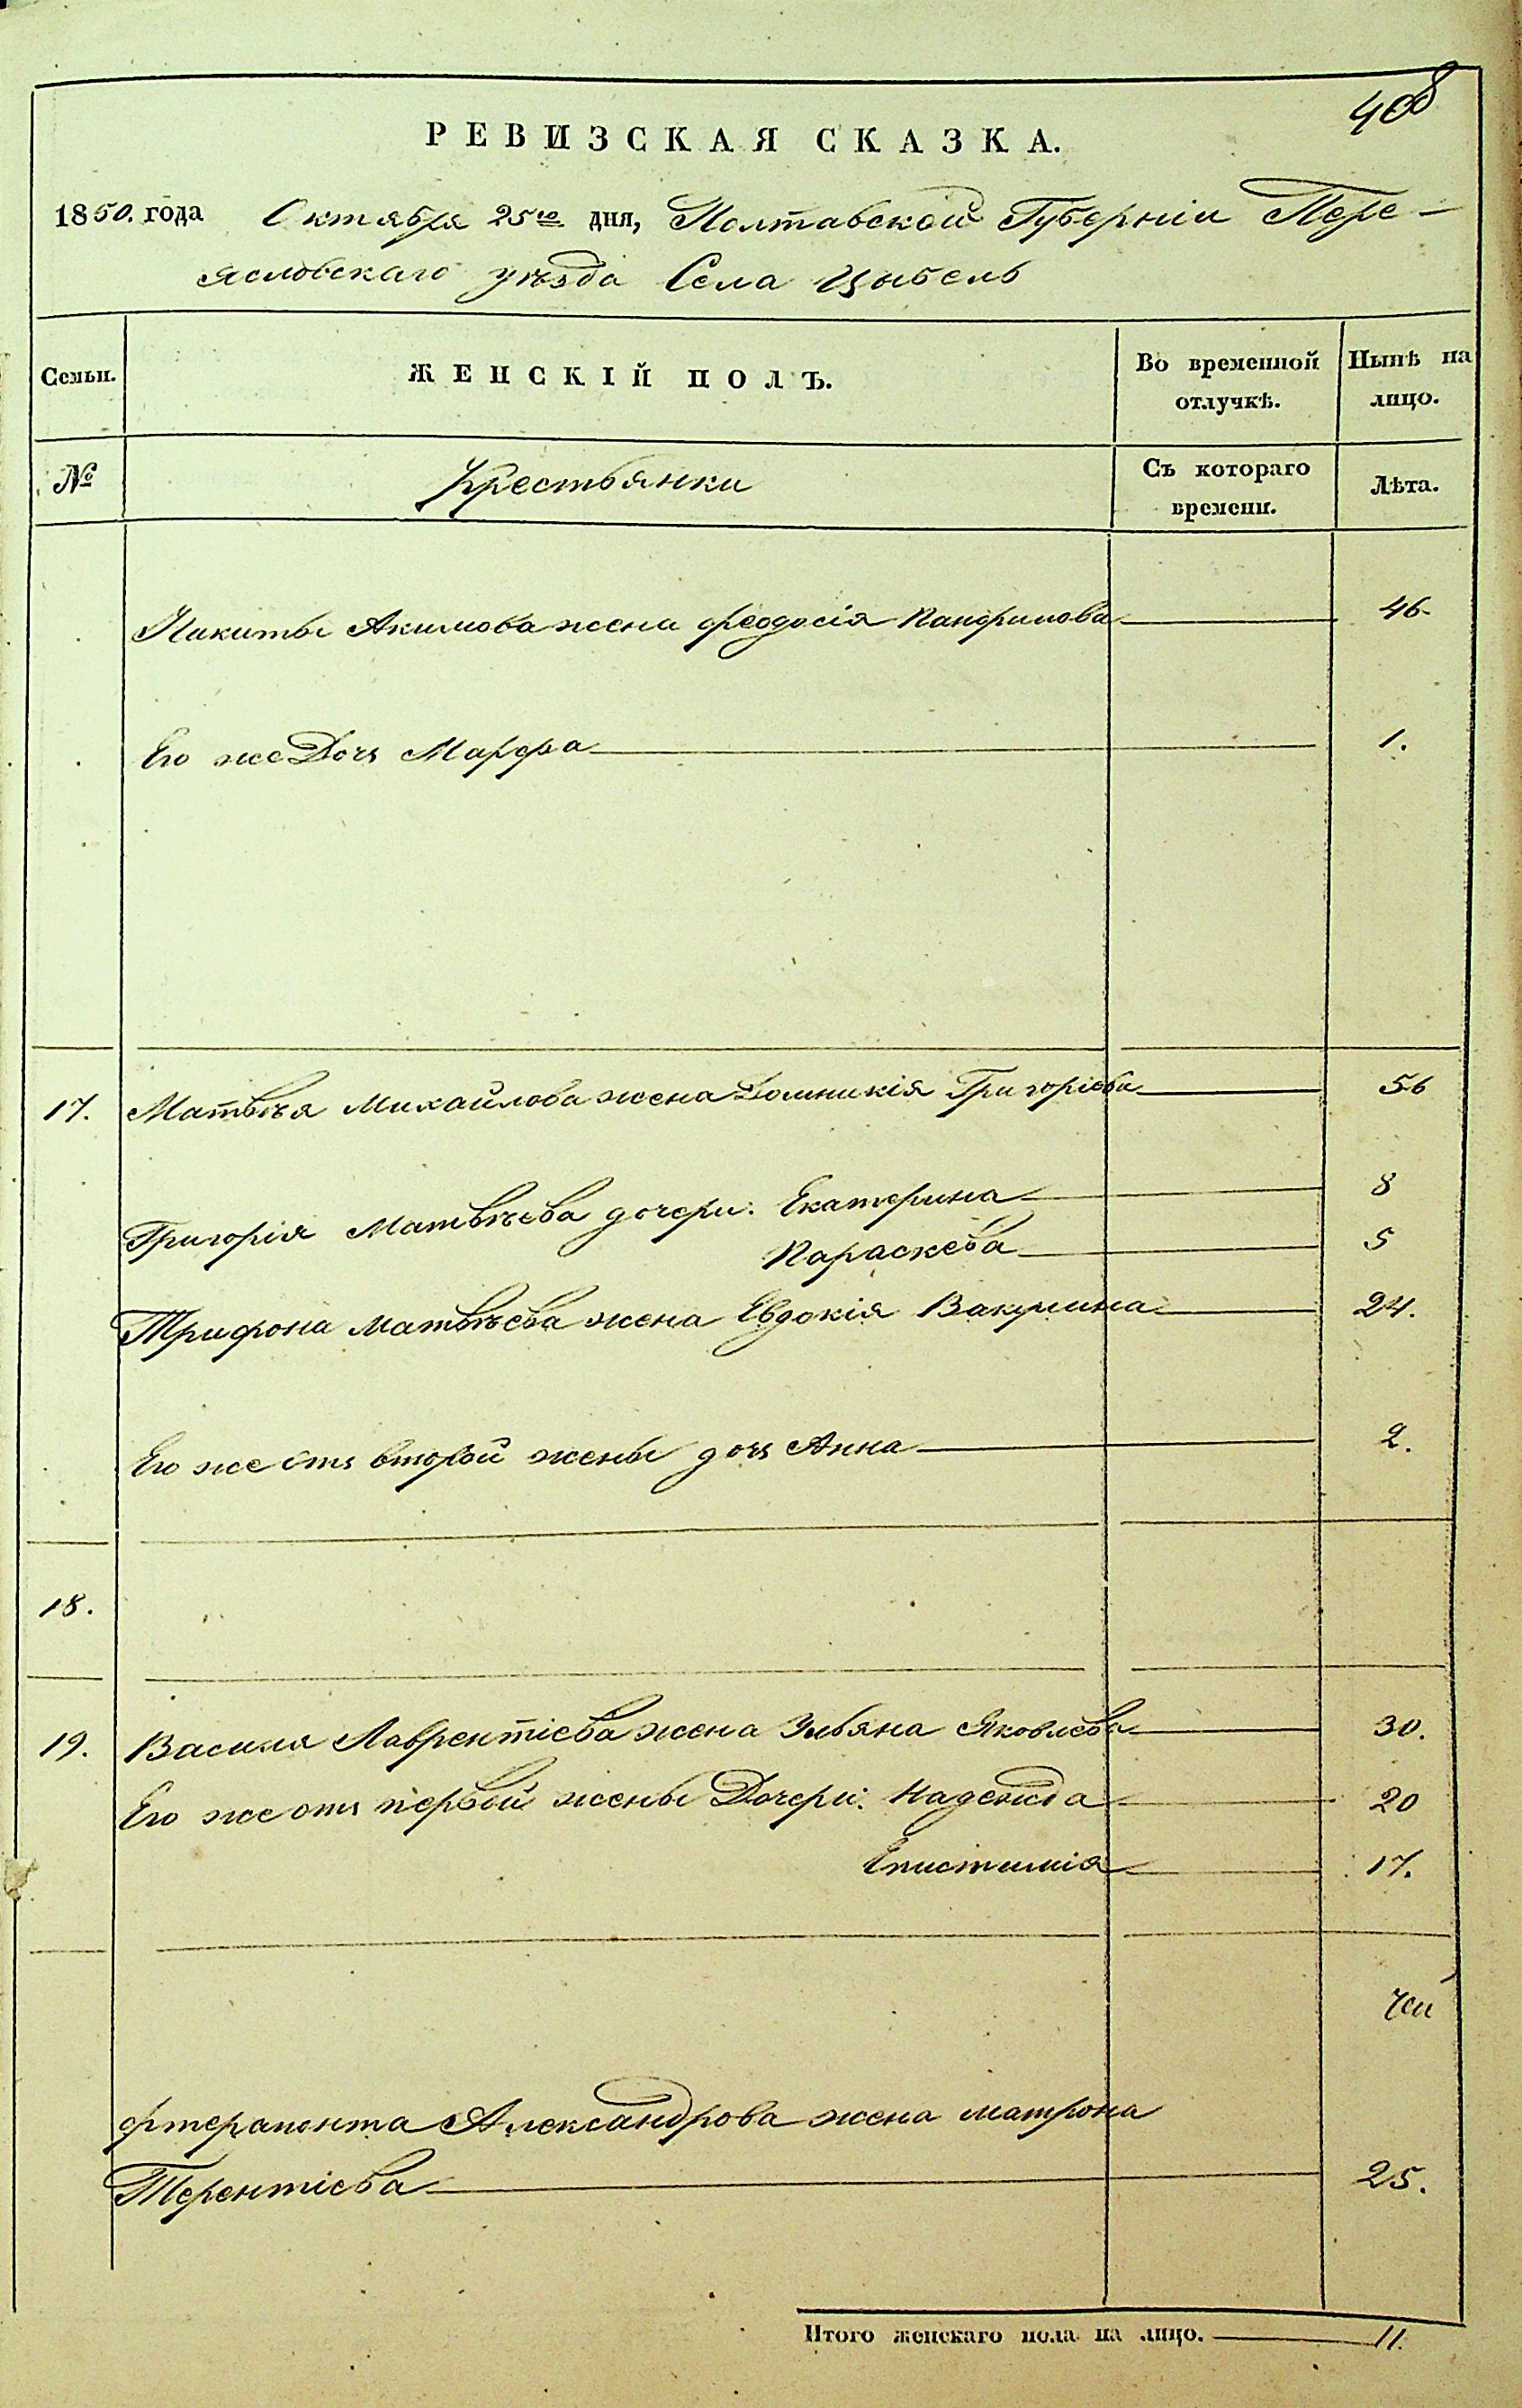 408
РЕВИЗСКАЯ СКАЗКА.
1850. года Октября 25го дня, Полтавской Губерніи Пере-
ясловскаго уѣзда Села Цыбель
Семьи. ЖЕНСКІЙ ПОЛЪ. Во временной отлучкѣ. Нынѣ на лицо.
№ Крестьянки Съ котораго времени. Лѣта.
Никиты Акимова жена Феодосія Панфилова 46.
Его же Дочь Марфа 1.
17. Матвѣя Михайлова жена Домникія Григоріева 56
Григорія Матвѣева дочери: Екатерина 8
Параскева 5
Трифона Матвѣева жена Евдокія Вакулина 24.
Его же отъ второй жены дочь Анна 2.
18.
19. Василя Лаврентіева жена Ульяна Яковлева 30.
Его же отъ первой жены Дочери: Надежда 20
Епистимія 17.
Фтерапонта Александрова жена Матрона
Терентіева 25.
Итого женскаго пола на лицо. 11.